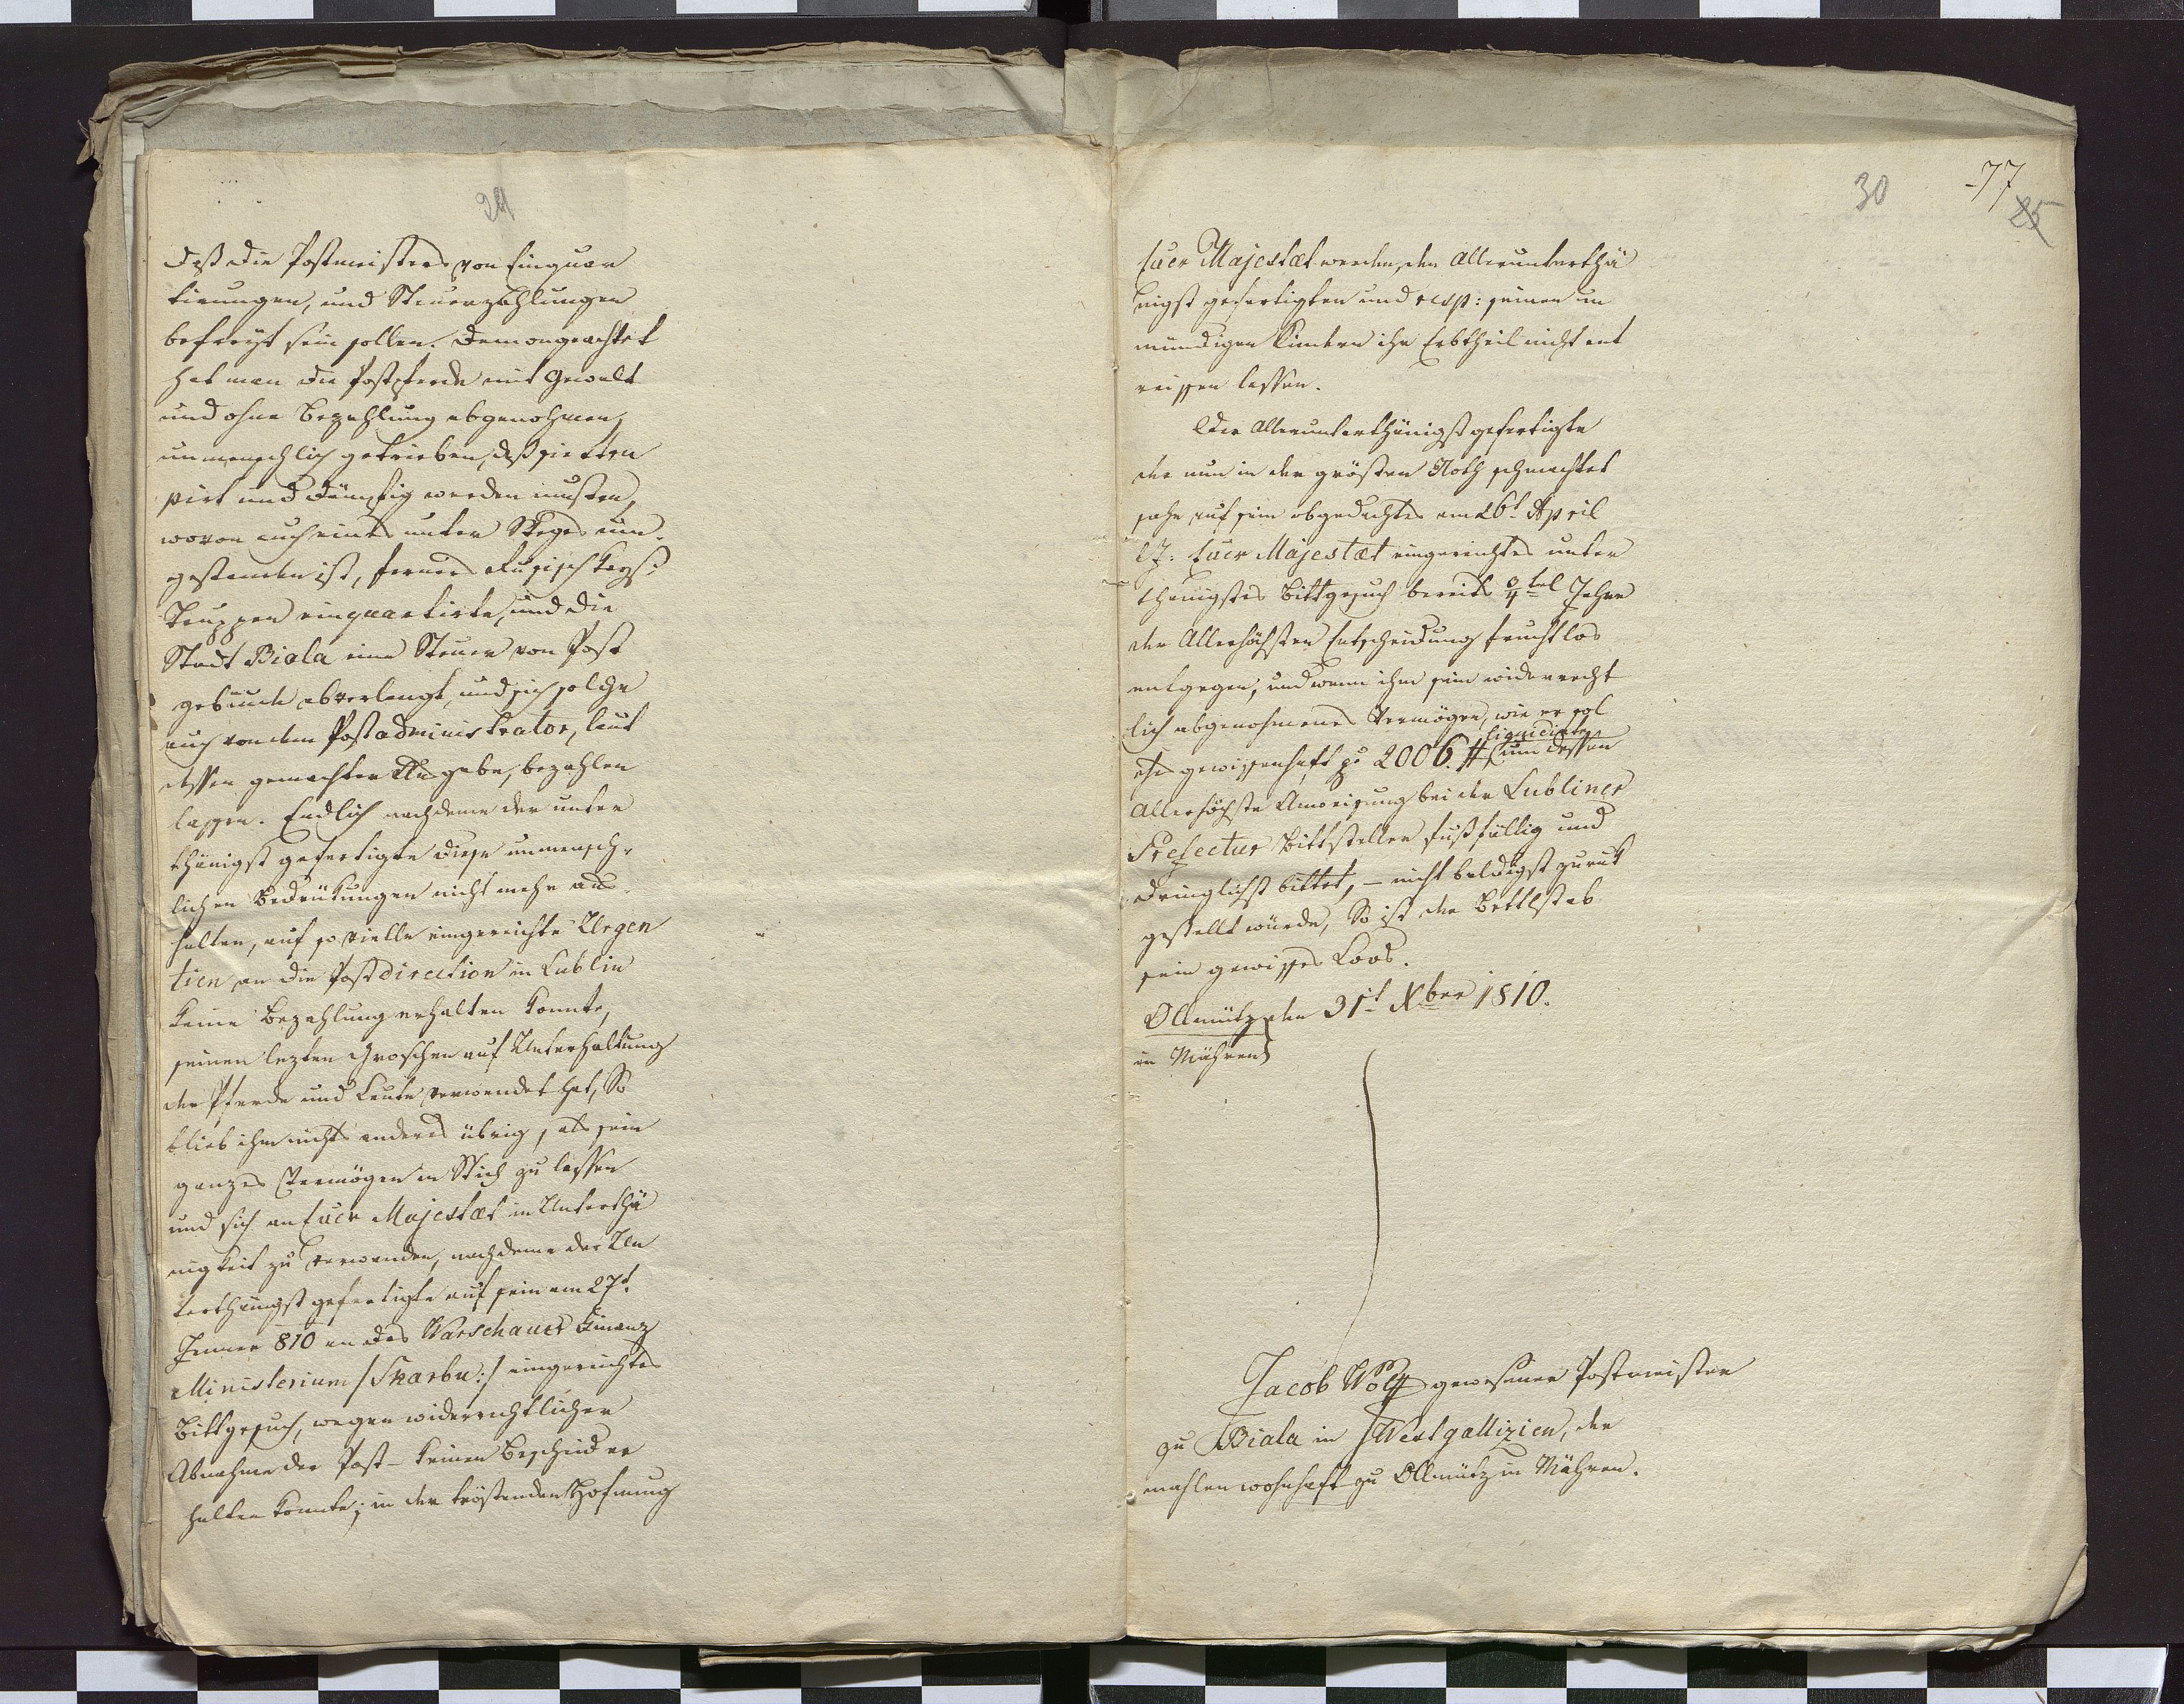 24
daß die Postmeisters von Einquar
tirungen, und Steuerzahlungen
befreyt sein sollen. Demongeachtet
hat man die Postpferde mit Gewalt
und ohne Bezahlung abgenohmen,
unmenschlich getrieben, daß sie
und dämpfig werden musten,
wovon auch eines unter Weges um
gestanden ist, ferners Rußisch Kays:
Truppen einquartirte, und die
Stadt Biala eine Steuer von Post
gebäude abverlangt, und sich solche
auch von dem Postadministrator, laut
dessen gemachter Angabe, bezahlen
lassen. Endlich nachdeme der unter
thänigst gefertigte diese unmensch-
lichen Bedrükungen nicht mehr aus
halten, auf so vielle eingereichte Urgen
tien an die Postdirection in Lublin
keine Bezahlung erhalten konnte,
seinen lezten Groschen auf Unterhaltung
der Pferde und Leute verwendet hat, So
blieb ihm nichts anders übrig, als sein
ganzes Vermögen in Stich zu lassen
und sich an Euer Majestæt in Unterthä
nigkeit zu verwenden, nachdeme der Un
terthänigst gefertigte auf sein am 27t
Jenner 810 an das Warschauer Finanz
Ministerium /Skarbu:/ eingereichtes
Bittgesuch, wegen widerrechtlicher
Abnahme der Post – keinen Bescheid er
halten konnte; in der tröstenden Hofnung
30
77
25
Euer Majestæt werden, den Allerunterthä
nigst gefertigten und resp: seinen un
mündigen Kindern ihr Erbtheil nicht ent
reissen lassen.
Der Allerunterthänigst gefertigte
der nun in der grösten Noth schmachtet
sahe auf sein obgedachtes am 26t April
l J: Euer Majestæt eingereichtes unter
thänigstes Bittgesuch bereits 3/4tel Jahre
der Allerhöchsten Entscheidung fruchtlos
entgegen, und wenn ihm sein widerrecht
lich abgenohmenes Vermögen, wie er sol
liquidirte
ches gewissenhaft pr 2006 # um dessen
Allerhöchste Anweisung bei der Lubliner
Prefectur Bittsteller fußfällig und
dringlichst bittet, – nicht baldigst zuruk
gestellt würde, So ist der Bettlstab
sein gewisses Loos.
Ollmütz den 31t Xber 1810.
in Mähren
Jacob Wolf gewesener Postmeister
zu Biala in Westgallizien, der
mahlen wohnhaft zu Ollmütz in Mähren.